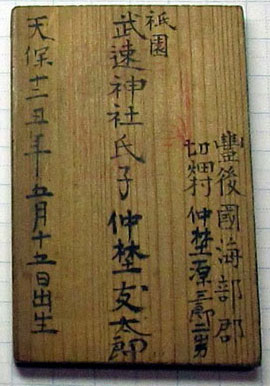 豐後國海部郡
切畑村 仲埜源三郎二男
祇園
武速神社氏子 仲埜友太郎
天保十二丑年五月十五日出生